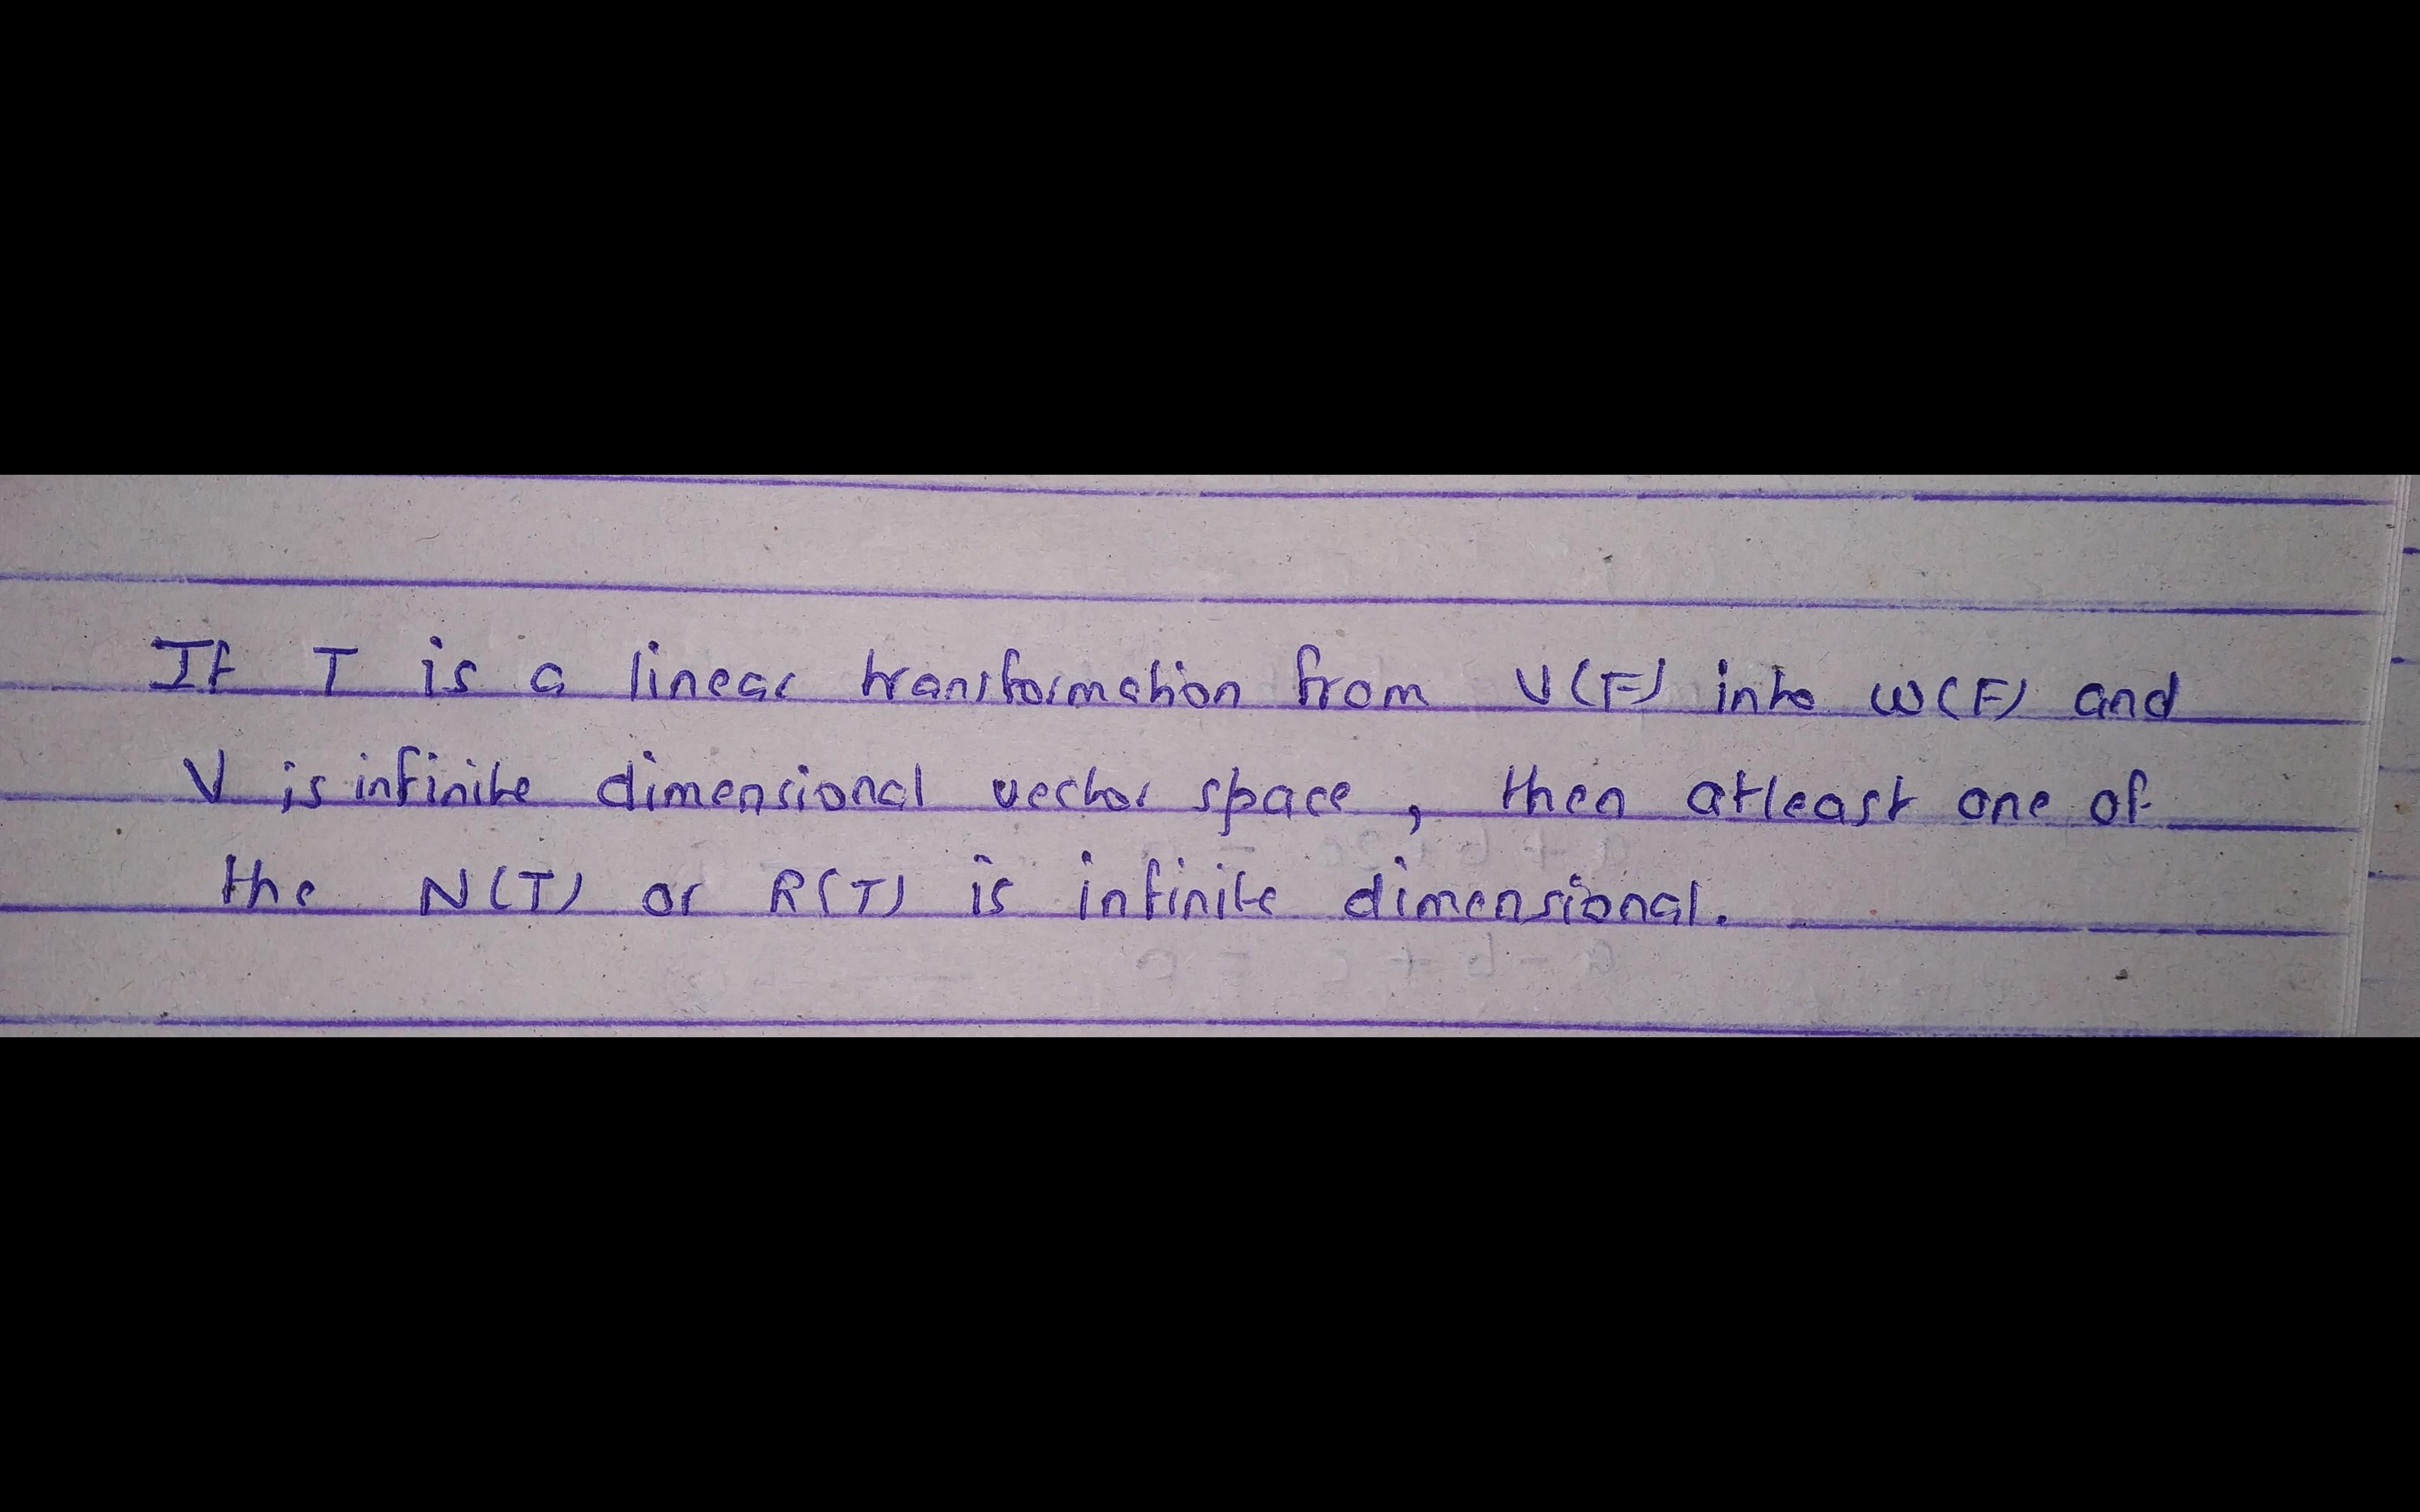 If T is a linear transformation from V(F) into W(F) and
V is infinite dimensional vector space, then atleast one of
the N(T) or R(T) is infinite dimensional.